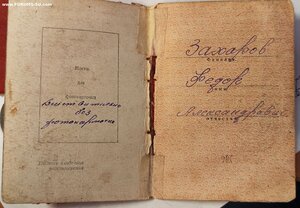 www.FORUMS-SU.com
Место
для
фотокарточки
Действительно
без
фотокарточки
Захаров
Фамилия
Федор
Имя
Александрович
отчество